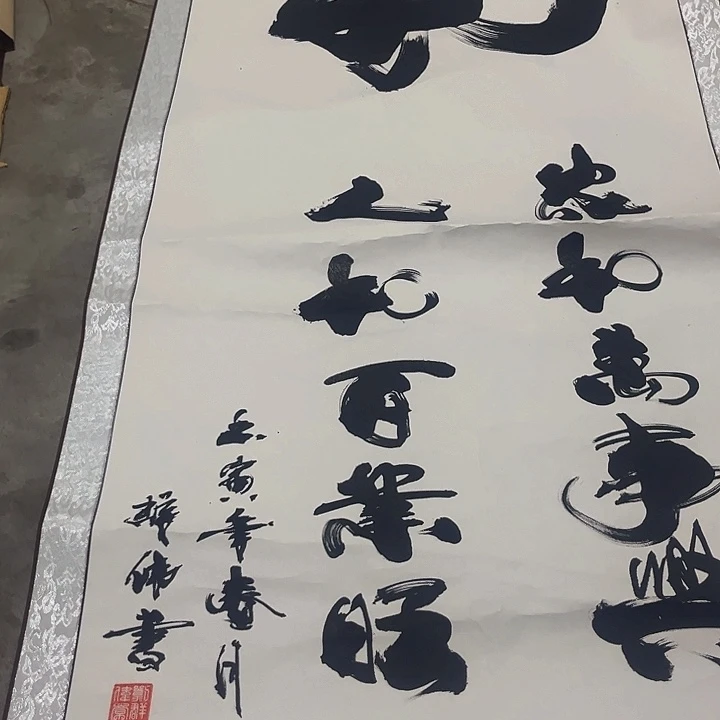 家和萬事興
人和百業旺
壬寅年春月
書